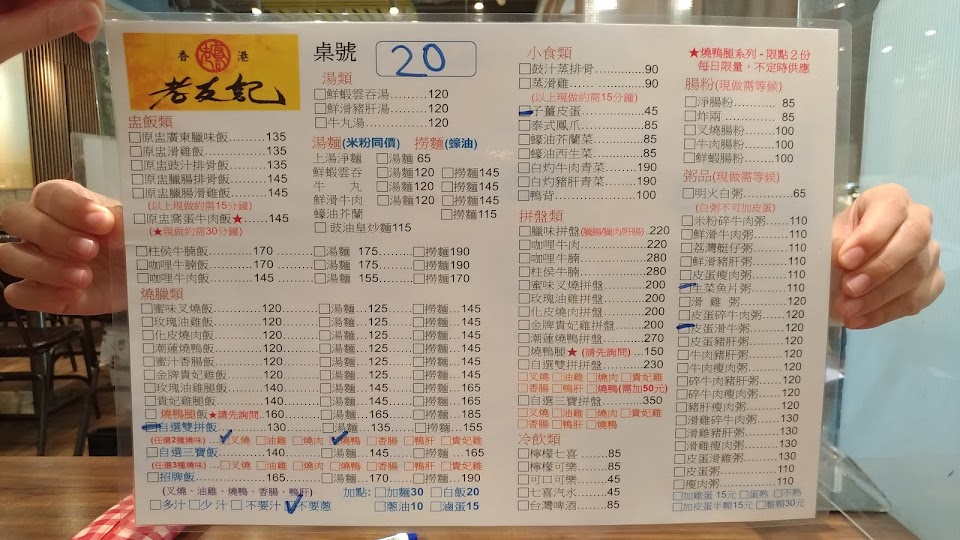 香 港
老友記
桌號 20
湯類
□鮮蝦雲吞湯............120
□鮮滑豬肝湯............120
□牛丸湯............120
湯麵(米粉同價) 撈麵(蠔油)
上湯淨麵 □湯麵 65
鮮蝦雲吞 □湯麵120 □撈麵145
牛 丸 □湯麵120 □撈麵145
鮮滑牛肉 □湯麵120 □撈麵145
蠔油芥蘭 □撈麵115
□豉油皇炒麵115
盅飯類
□原盅廣東臘味飯............135
□原盅滑雞飯............135
□原盅豉汁排骨飯............145
□原盅臘腸排骨飯............145
□原盅臘腸滑雞飯............145
(以上現做約需15分鐘)
□原盅窩蛋牛肉飯★......145
(★現做約需30分鐘)
□柱侯牛腩飯............170 □湯麵 175............□撈麵190
□咖哩牛腩飯............170 □湯麵 175............□撈麵190
□咖哩牛肉飯............145 □湯麵 155............□撈麵170
燒臘類
□蜜味叉燒飯............120 □湯麵...125 □撈麵...145
□玫瑰油雞飯............120 □湯麵...125 □撈麵...145
□化皮燒肉飯............120 □湯麵...125 □撈麵...145
□潮蓮燒鴨飯............120 □湯麵...125 □撈麵...145
□蜜汁香腸飯............120 □湯麵...125 □撈麵...145
□金牌貴妃飯............120 □湯麵...125 □撈麵...145
□玫瑰油雞腿飯............140 □湯麵...145 □撈麵...165
□貴妃雞腿飯............140 □湯麵...145 □撈麵...165
□燒鴨腿飯★請先詢問...160 □湯麵...165 □撈麵...185
□自選雙拼飯............130 □湯麵...135 □撈麵...155
(任選2種燒味)...□叉燒 □油雞 □燒肉 □燒鴨 □香腸 □鴨肝 □貴妃雞
□自選三寶飯............140 □湯麵...145 □撈麵...165
(任選3種燒味)...□叉燒 □油雞 □燒肉 □燒鴨 □香腸 □鴨肝 □貴妃雞
□招牌飯............165 □湯麵...170 □撈麵...190
(叉燒、油雞、燒鴨、香腸、鴨肝) 加點:□加麵30 □白飯20
□多汁 □少汁 □不要汁 □不要蔥 □蔥油10 □滷蛋15
小食類
□豉汁蒸排骨............90
□蒸滑雞............90
(以上現做約需15分鐘)
□子薑皮蛋............45
□泰式鳳爪............85
□蠔油芥蘭菜............85
□蠔油西生菜............85
□白灼牛肉青菜............190
□白灼豬肝青菜............190
□鴨背............100
拼盤類
□臘味拼盤............220
□咖哩牛肉............220
□咖哩牛腩............280
□柱侯牛腩............280
□蜜味叉燒拼盤............200
□玫瑰油雞拼盤............200
□化皮燒肉拼盤............200
□金牌貴妃雞拼盤............200
□潮蓮燒鴨拼盤............270
□燒鴨腿★(請先詢問)...150
□自選雙拼拼盤............230
□叉燒 □油雞 □燒肉 □貴妃雞
□香腸 □鴨肝 □燒鴨(需加50元)
□自選三寶拼盤............350
□叉燒 □油雞 □燒肉 □燒鴨
□香腸 □鴨肝 □貴妃雞
冷飲類
□檸檬七喜......85
□檸檬可樂......85
□可口可樂......45
□七喜汽水......45
□台灣啤酒......85
★燒鴨腿系列-限點2份
每日限量,不定時供應
腸粉(現做需等候)
□淨腸粉............85
□炸兩............85
□叉燒腸粉............100
□牛肉腸粉............100
□鮮蝦腸粉............100
粥品(現做需等候)
□明火白粥............65
(白粥不可加皮蛋)
□米粉碎牛肉粥............110
□鮮滑牛肉粥............110
□荔灣艇仔粥............110
□鮮滑豬肝粥............110
□皮蛋瘦肉粥............110
□生菜魚片粥............120
□滑 雞 粥............120
□皮蛋碎牛肉粥............120
□皮蛋滑牛粥............120
□皮蛋豬肝粥............120
□牛肉豬肝粥............120
□牛肉瘦肉粥............120
□碎牛肉豬肝粥............120
□碎牛肉瘦肉粥............120
□豬肝瘦肉粥............120
□滑雞碎牛肉粥............130
□滑雞豬肝粥............130
□滑雞瘦肉粥............130
□皮蛋滑雞粥............130
□皮蛋粥............110
□瘦肉粥............110
□加雞蛋 15元 □蛋熟 □不熟
□加皮蛋半顆15元 □整顆30元